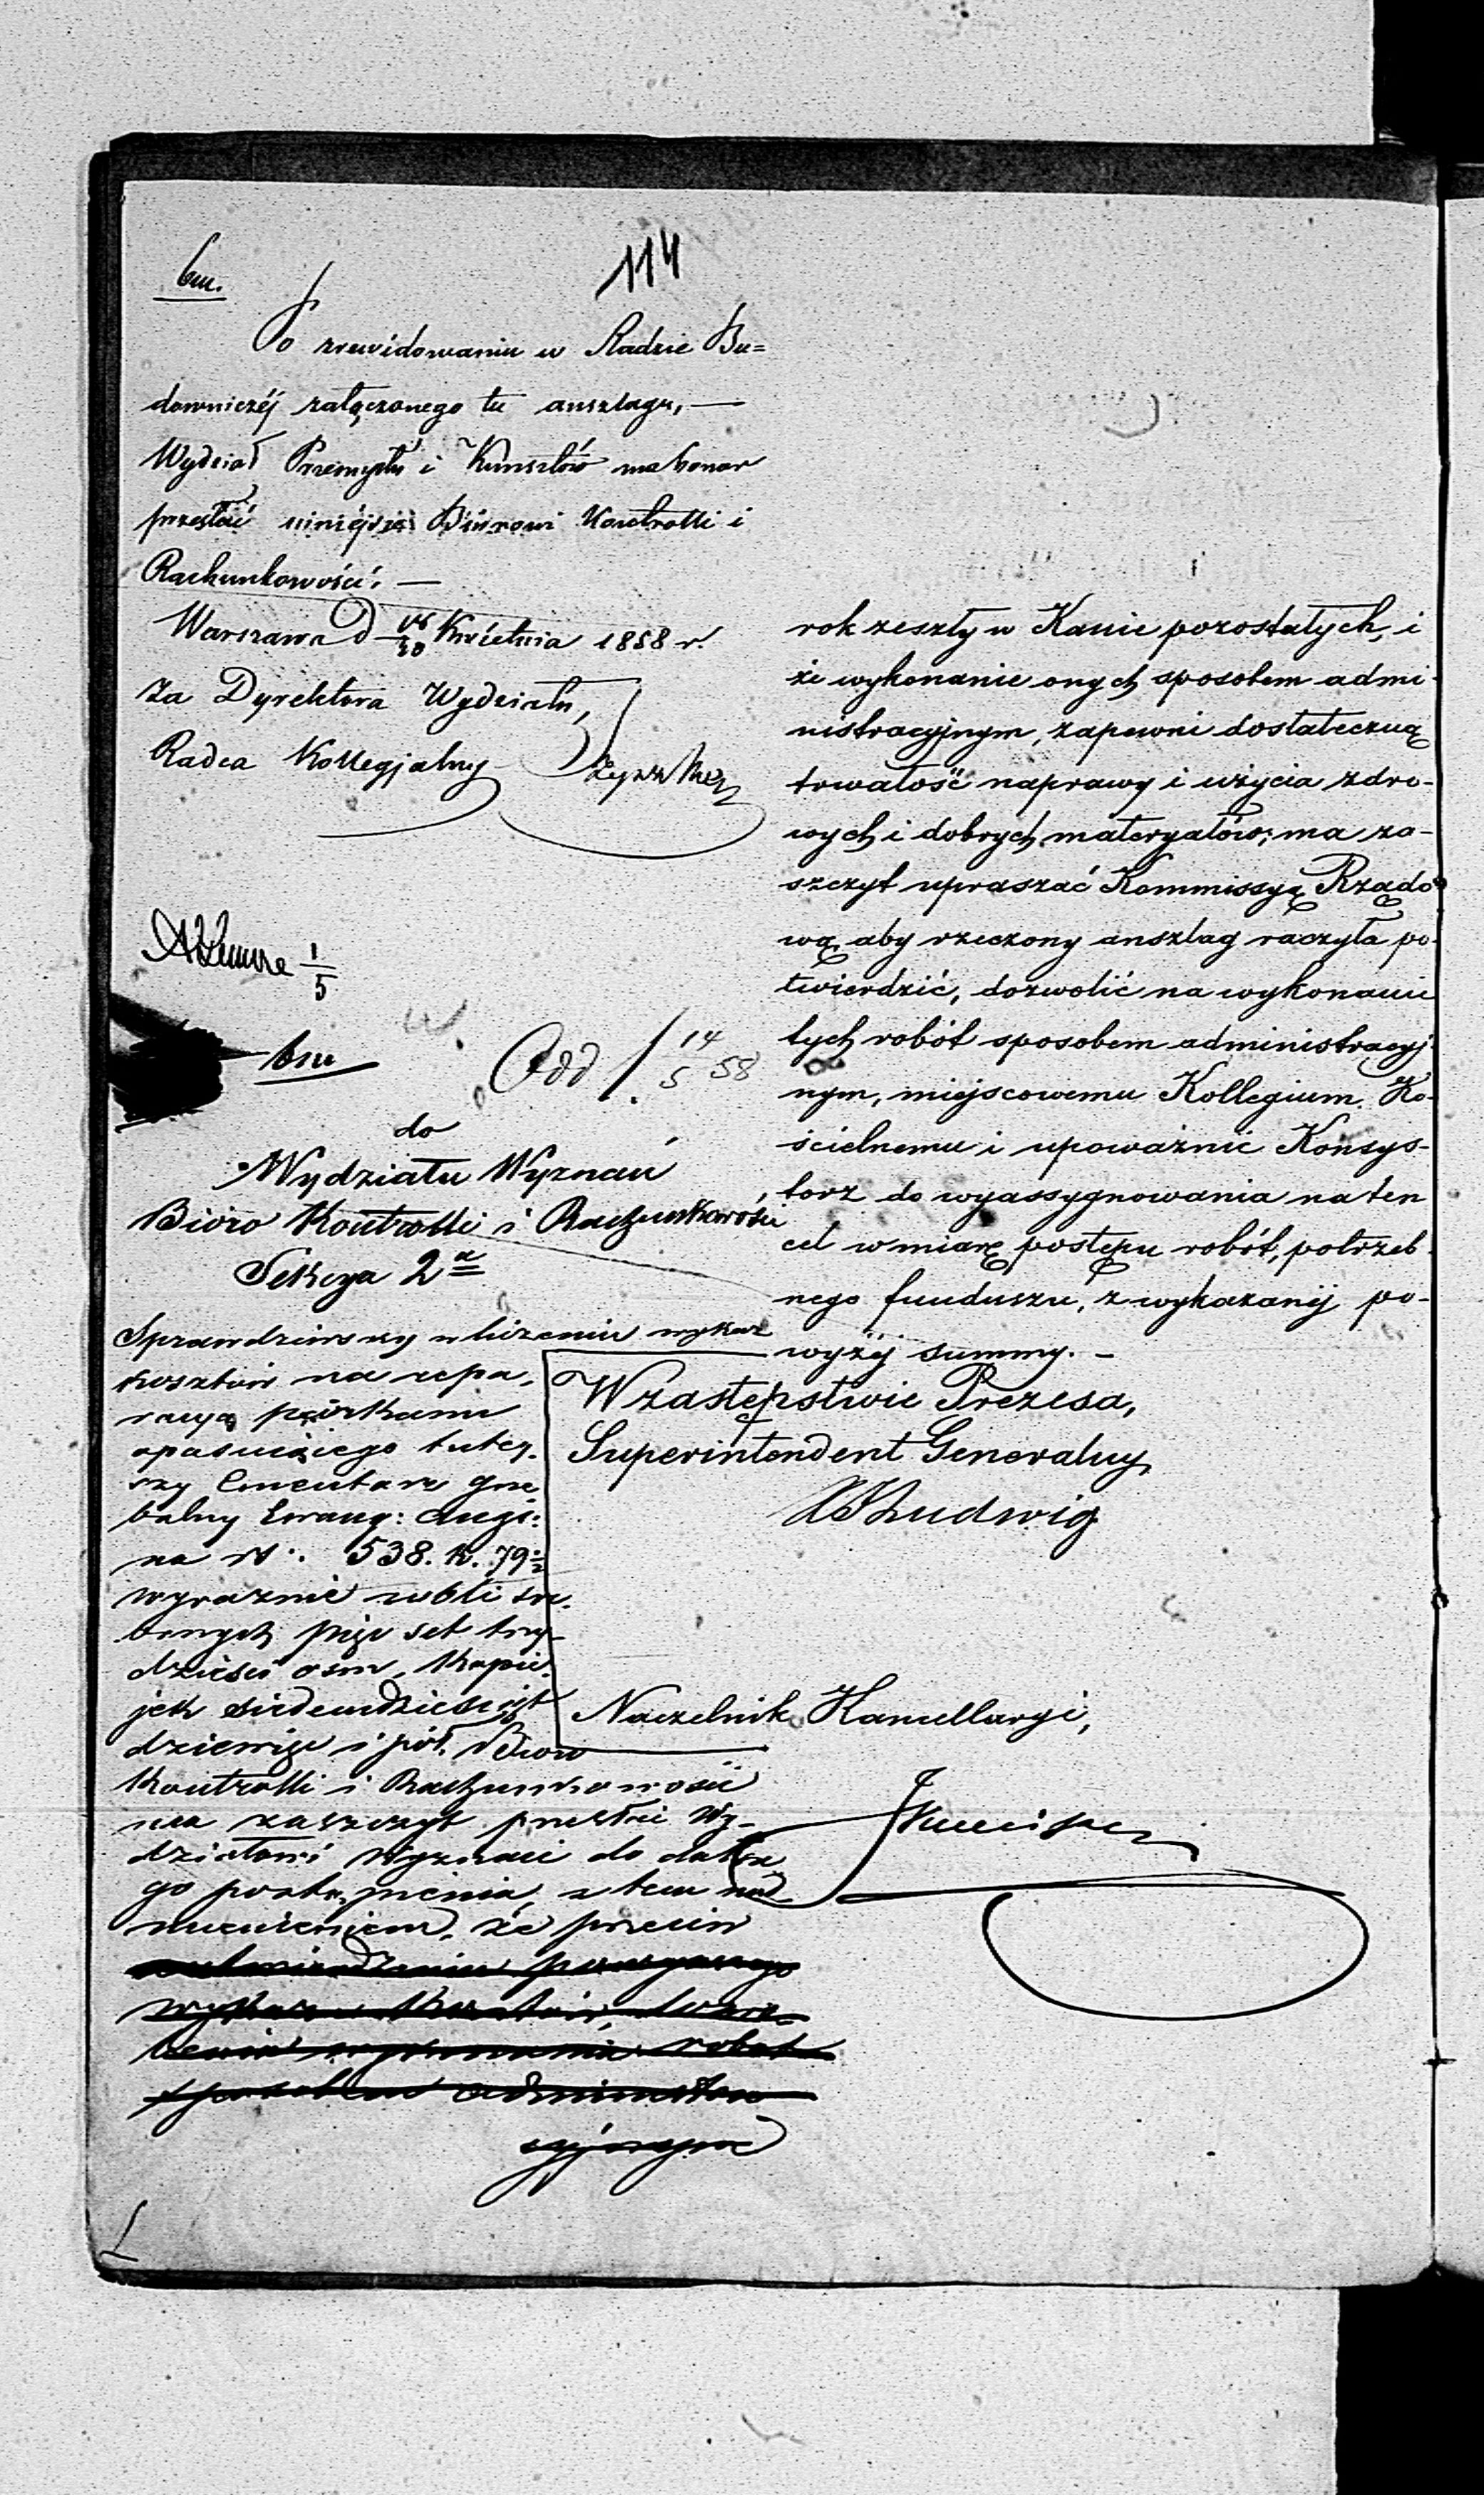 114
bm.
Po zrewidowaniu w Radzie Bu=
downiczéj załączonego tu anszlagu, —
Wydział Przemysłu i Kunsztów ma honor
przesłać niniéjsze Biurowi Kontrolli i
Rachunkowości. —
Warszawa d 18/30 Kwietnia 1858 r.
Za Dyrektora Wydziału,
Radca Kollegjalny
1/5
bm
Odd 14/5 58
do
Wydziału Wyznań
Bióro Kontrolli i Rachunkowości
Sekcya 2a
Sprawdziwszy w liczeniu wykaz
kosztów na repa-
racyą parkanu
opasującego tutej-
szy Cmentarz grze
balny Ewang: Augs:
na rs. 538. k. 79½
wyraźnie rubli sre-
brnych pięć set trzy-
dzieści ośm, kopie-
jek siedemdziesiąt
dziewięć i pół. Biuro
Kontrolli i Rachunkowości
ma zaszczyt przesłać Wy-
działowi Wyznań do dalsze
go postąpienia, z tem nad
mienieniem, że przeciw
wykazu kosztów,
robót
sposobem administra
cyjnym
rok zeszły w Kassie pozostałych, i
że wykonanie onych sposobem admi-
nistracyjnym, zapewni dostateczną
trwałość naprawy i użycia zdro-
wych i dobrych materyałów; ma za-
szczyt upraszać Kommissyą Rządo-
wą, aby rzeczony anszlag raczyła po-
twierdzić, dozwolić na wykonanie
tych robót sposobem administracyj-
nym, miejscowemu Kollegium Ko-
ścielnemu i upoważnić Konsys-
torz do wyassygnowania na ten
cel w miarę postępu robót, potrzeb-
nego funduszu, z wykazanéj po-
wyżéj summy. —
W zastępstwie Prezesa,
Superintendent Generalny,
Ludwig
Naczelnik Kancellaryi,